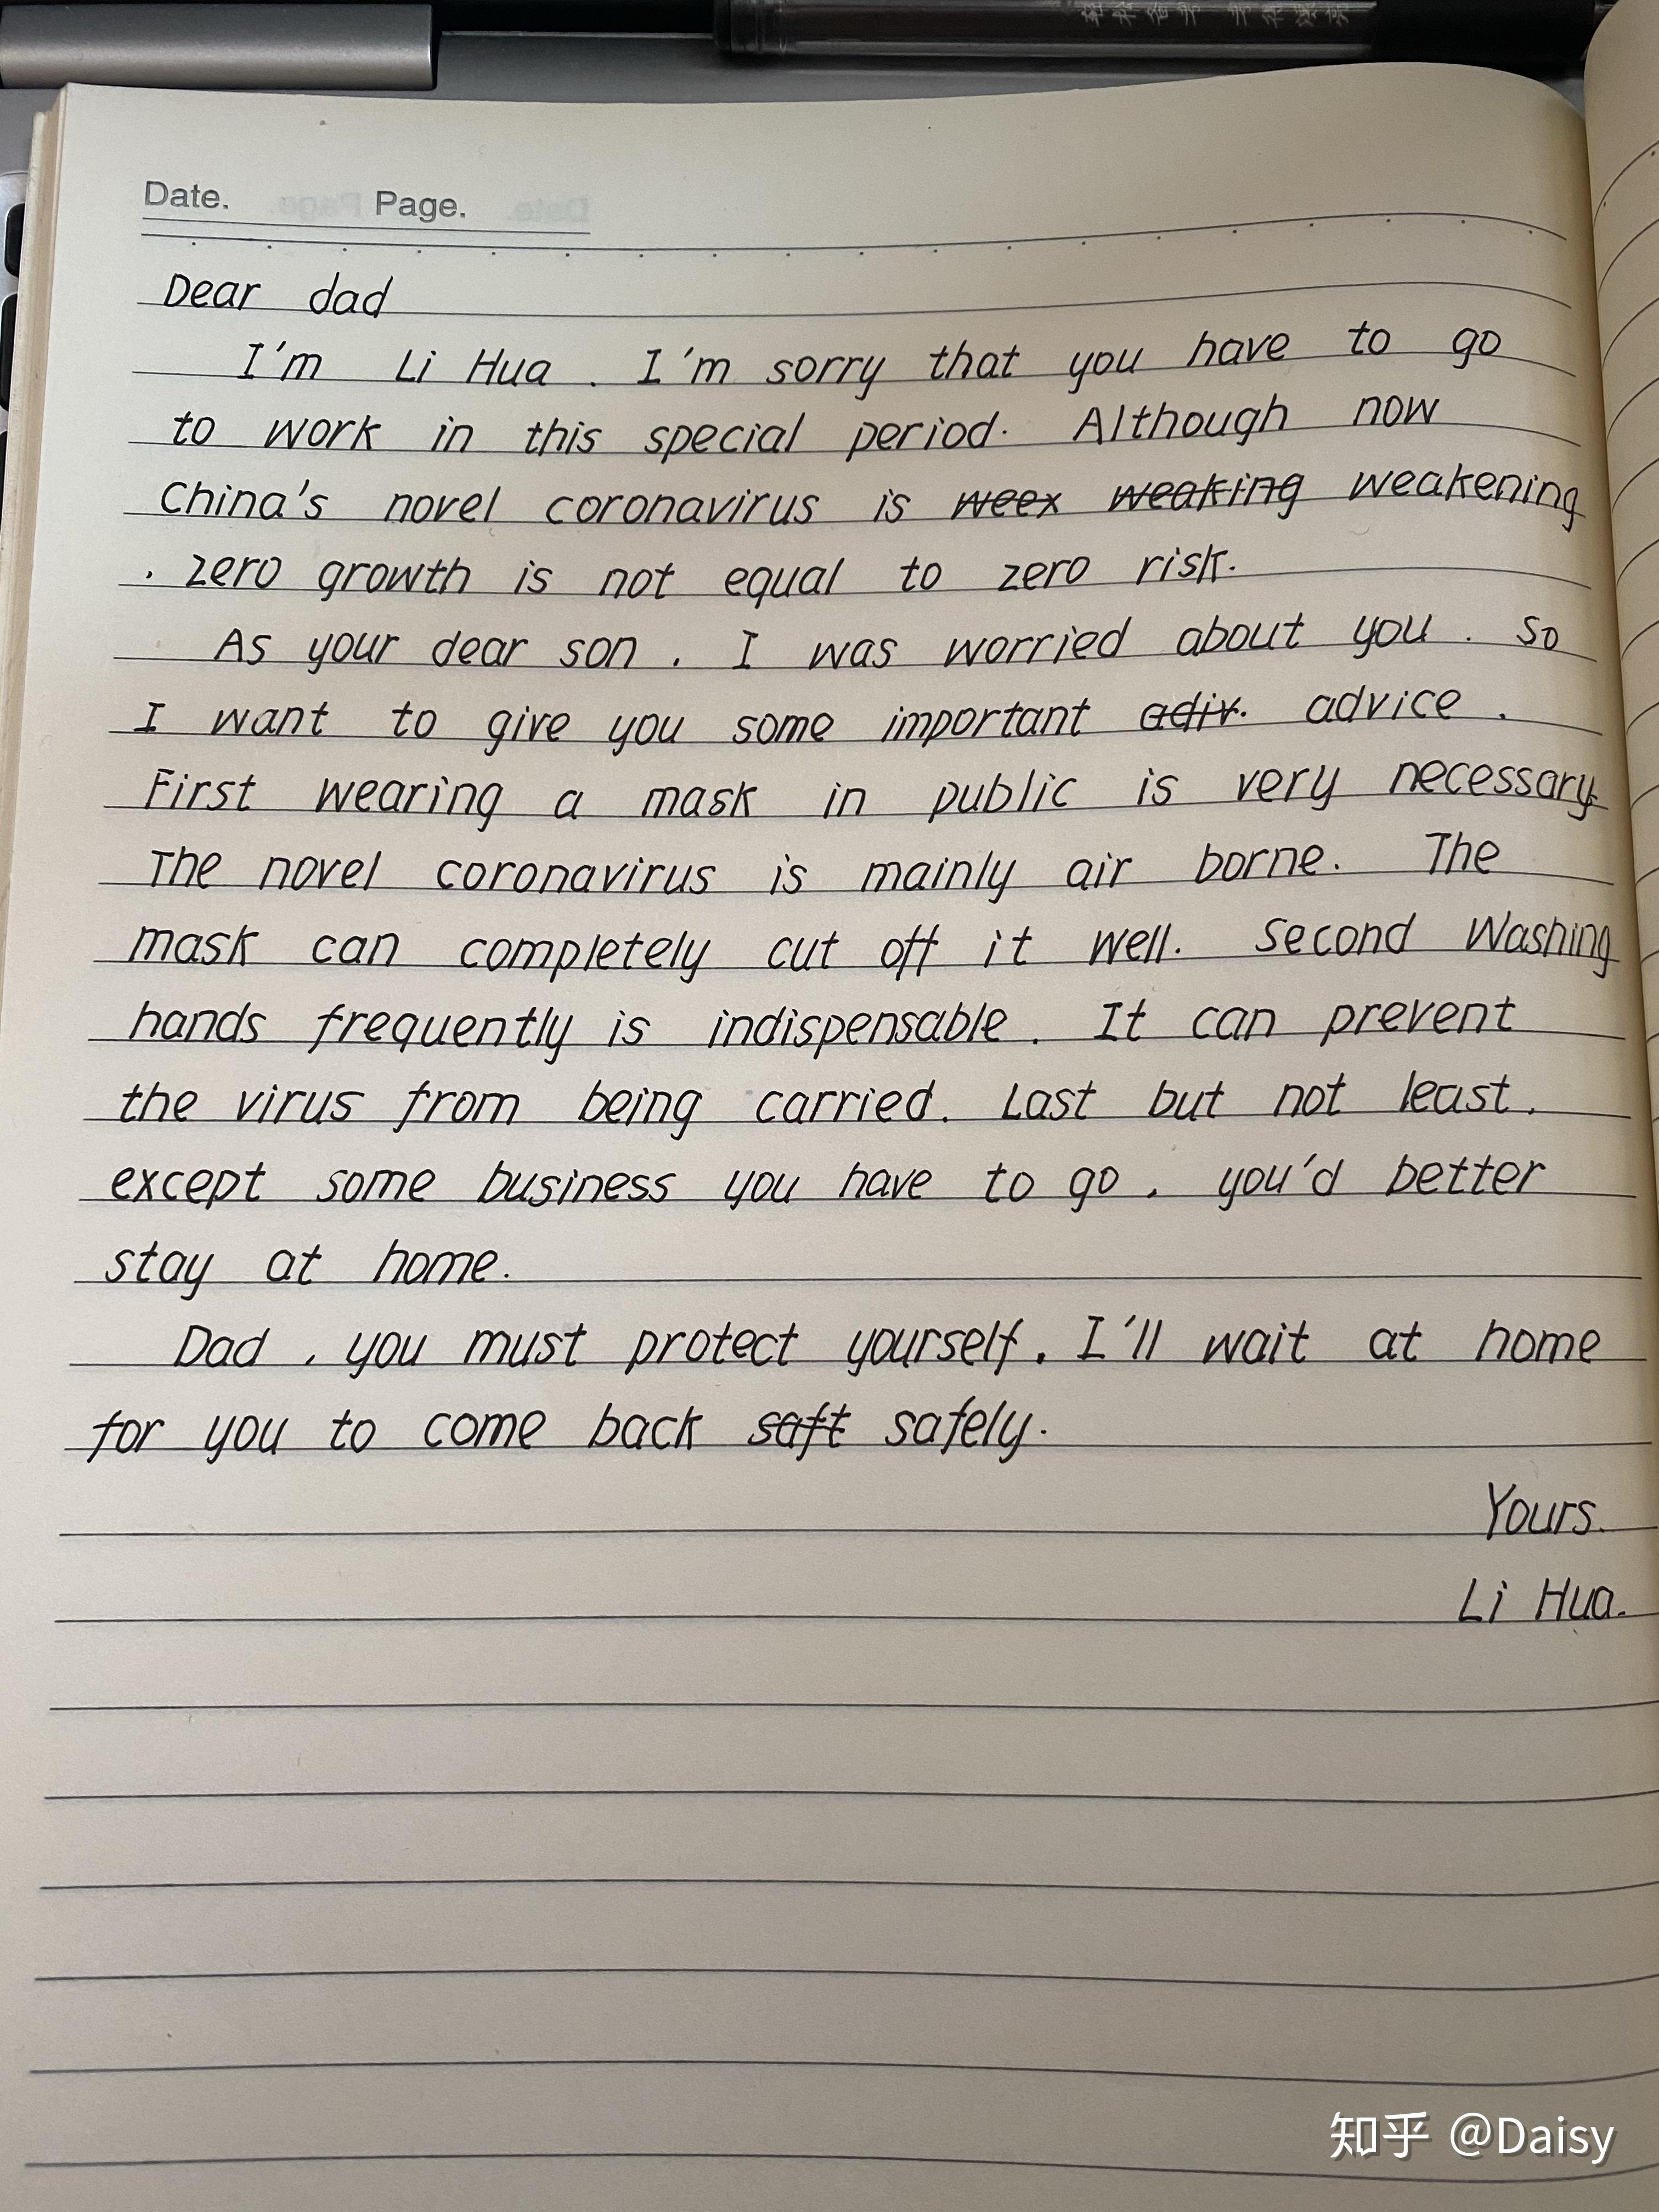 Date. Page.
Dear dad
I'm Li Hua . I'm sorry that you have to go
to work in this special period. Although now
China's novel coronavirus is weex weaking weakening
, zero growth is not equal to zero risk.
As your dear son , I was worried about you . so
I want to give you some important adiv. advice .
First wearing a mask in public is very necessary.
The novel coronavirus is mainly air borne. The
mask can completely cut off it well. Second Washing
hands frequently is indispensable . It can prevent
the virus from being carried. Last but not least,
except some business you have to go , you'd better
stay at home.
Dad , you must protect yourself. I'll wait at home
for you to come back saft safely.
Yours.
Li Hua.
知乎 @Daisy